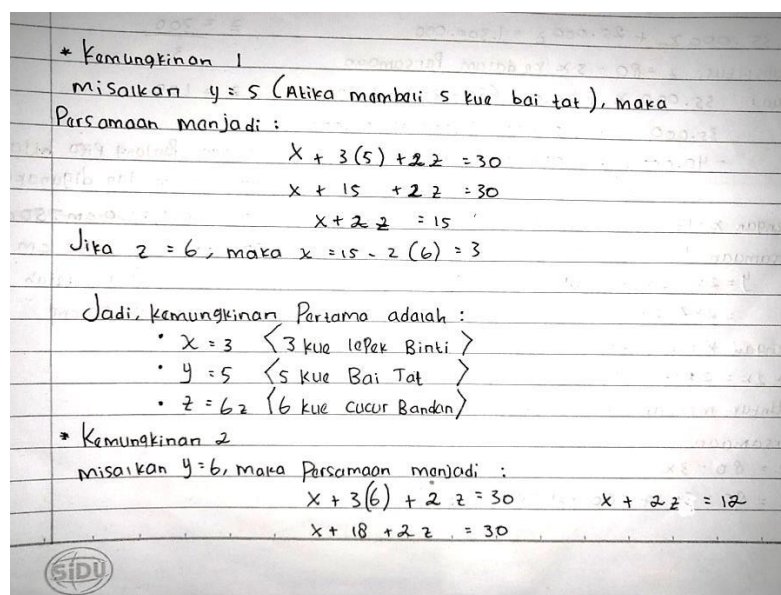 * Kemungkinan 1
misalkan y = 5 (Atika membeli 5 kue bai tat), maka
Persamaan menjadi :
x + 3(5) + 2z = 30
x + 15 + 2z = 30
x + 2z = 15
Jika z = 6, maka x = 15 - 2(6) = 3
Jadi, kemungkinan Pertama adalah :
• x = 3 <3 kue lePek Binti>
• y = 5 <5 kue Bai Tat>
• z = 6z <6 kue cucur Bandan>
* Kemungkinan 2
misalkan y = 6, maka Persamaan menjadi :
x + 3(6) + 2z = 30 x + 2z = 12
x + 18 + 2z = 30
SiDU